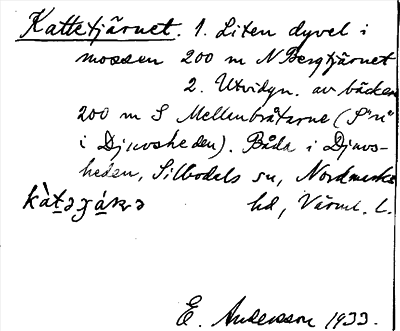 Kattetjärnet. 1. Liten dyvel i
mossen 200 m N Bergtjärnet
2. Utvidgn. av bäcken
200 m S Mellenbråtarne (
i Djuvsheden). Båda i Djuvs-
heden, Silbodals sn, Nordmarks
hd, Värml. l.
E. Andersson 1933.